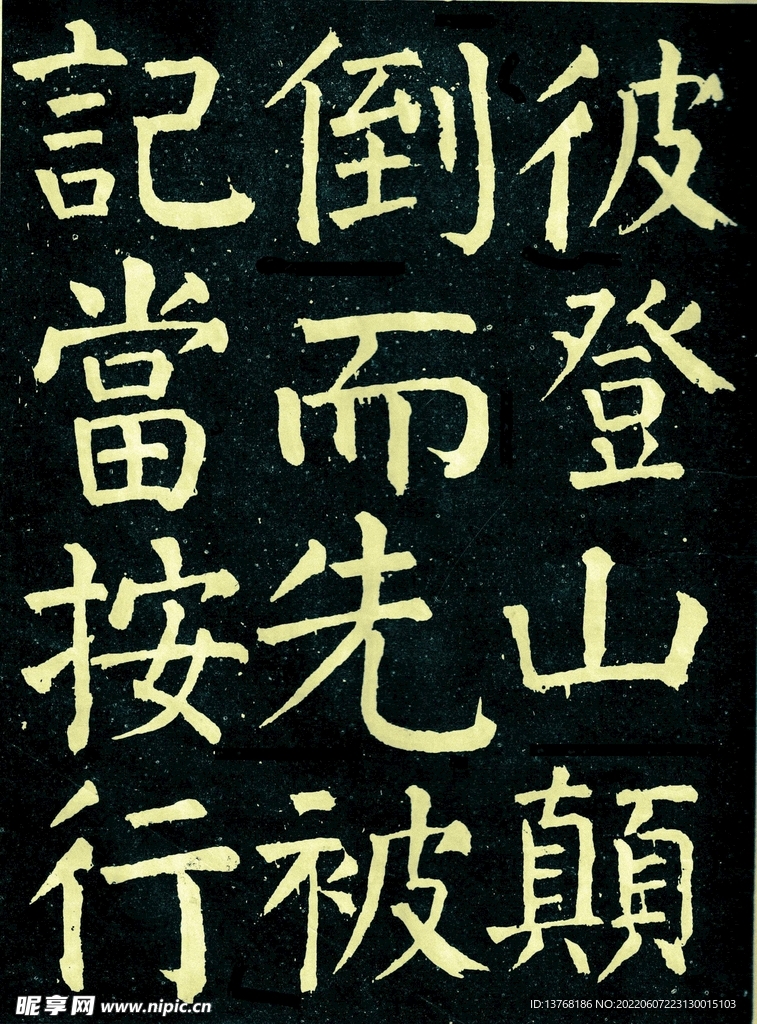 彼登山顛
倒而先被
記當按行
昵享网 www.nipic.cn
ID:13768186 NO:20220607223130015103